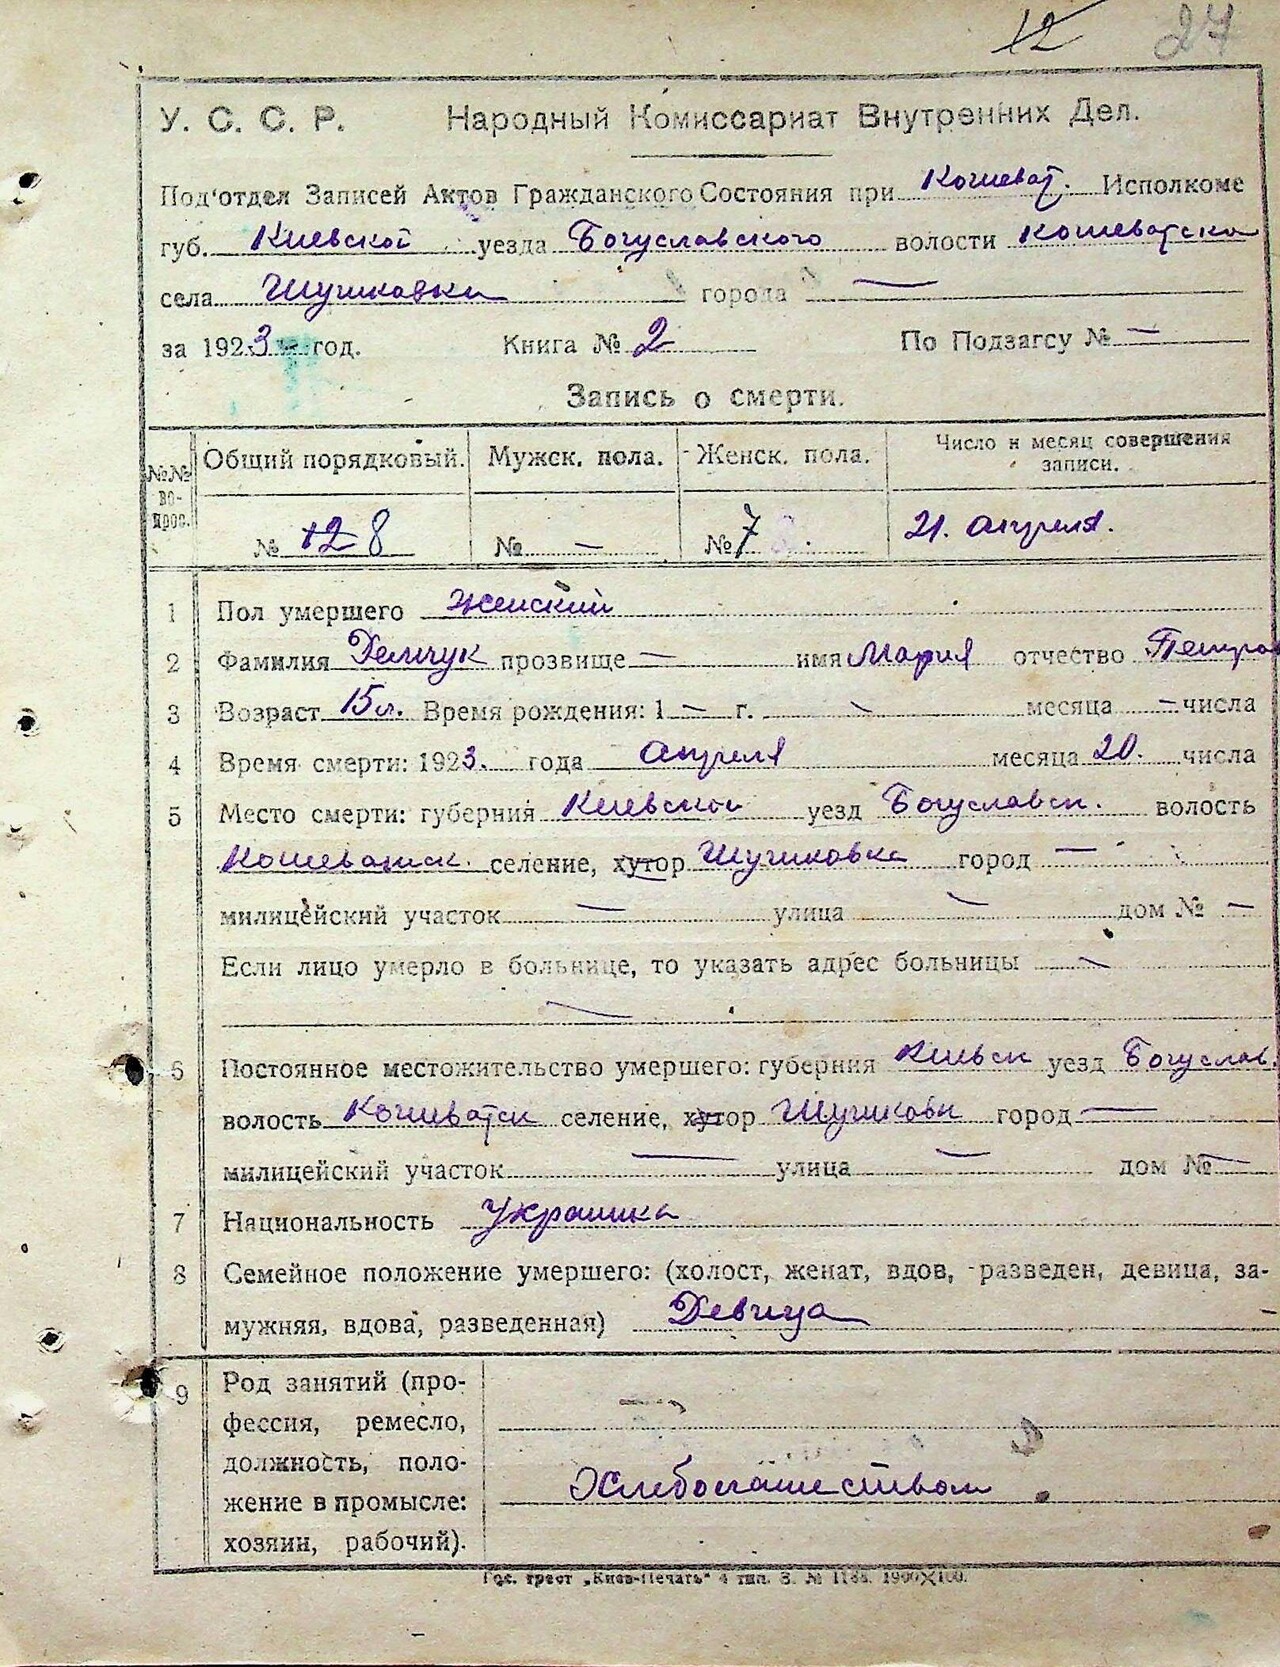 12 27
У. С. С. Р. Народный Комиссариат Внутренних Дел.
Под'отдел Записей Актов Гражданского Состояния при Кошеват. Исполкоме
губ. Киевской уезда Богуславского волости Кошеватско
села Шушковки города —
за 1923 год. Книга № 2 По Подзагсу № —
Запись о смерти.
№№ во- прос. Общий порядковый. Мужск. пола. Женск. пола. Число и месяц совершения записи.
№ 128 № — № 7 21. апреля.
1 Пол умершего Женский
2 Фамилия Демчук прозвище — имя Мария отчество Петров
3 Возраст 15 л. Время рождения: 1 — г. — месяца — числа
4 Время смерти: 1923. года апреля месяца 20. числа
5 Место смерти: губерния Киевской уезд Богуславск. волость
Кошеватск. селение, хутор Шушковка город —
милицейский участок — улица — дом № —
Если лицо умерло в больнице, то указать адрес больницы —
—
6 Постоянное местожительство умершего: губерния Киевск уезд Богуслав.
волость Кошеватск селение, хутор Шушковк город —
милицейский участок — улица — дом № —
7 Национальность Украинка
8 Семейное положение умершего: (холост, женат, вдов, разведен, девица, за-
мужняя, вдова, разведенная) Девица
9 Род занятий (про-
фессия, ремесло,
должность, поло-
жение в промысле:
хозяин, рабочий).
Хлебопашеством
Гос. трест „Киев-Печать" 4 тип. З. №